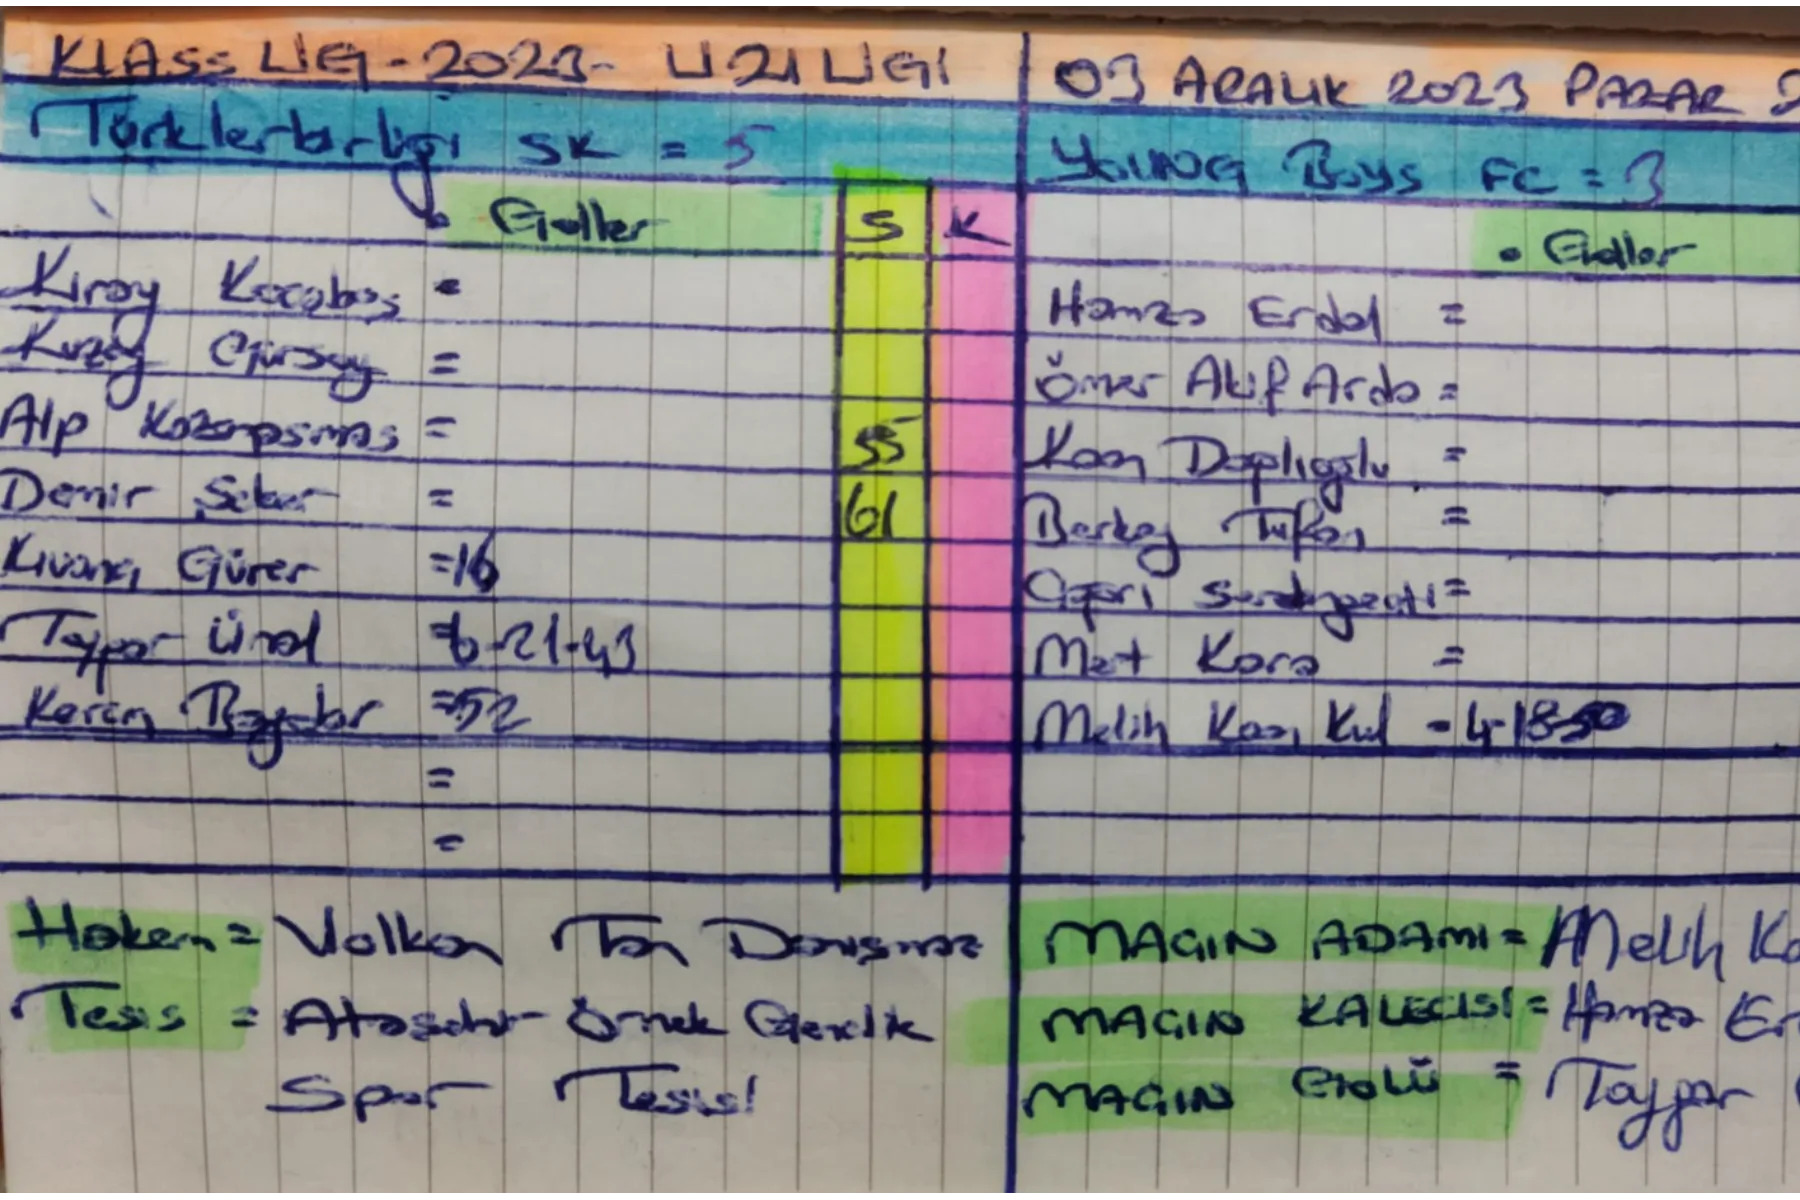 KLASS LİG - 2023 - U21 LİGİ
03 ARALIK 2023 PAZAR 2
Türklerbirligi SK = 5
YOUNG Boys FC = 3
• Goller S K
• Goller
Kıray Kocabaş =
Hamza Erdal =
Kuzey Gürsoy =
Ömer Akif Arda =
Alp Kazanpsmas = 55
Kaan Daplıgolu =
Demir Şeker = 61
Berkay Tufan =
Kıvanç Gürer =16
Mert Kara =
Taypar Ünal 6-21-43
Melih Kaan Kul - 4-18-50
Kerem Baydar =52
=
=
Hakem = Volkan Tan Danışmaz
MAÇIN ADAMI = Melih Ka
Tesis = Ataşehir Örnek Gençlik
MAÇIN KALECİSİ = Hamza Er
Spor Tesisi
MAÇIN GOLÜ = Taypar